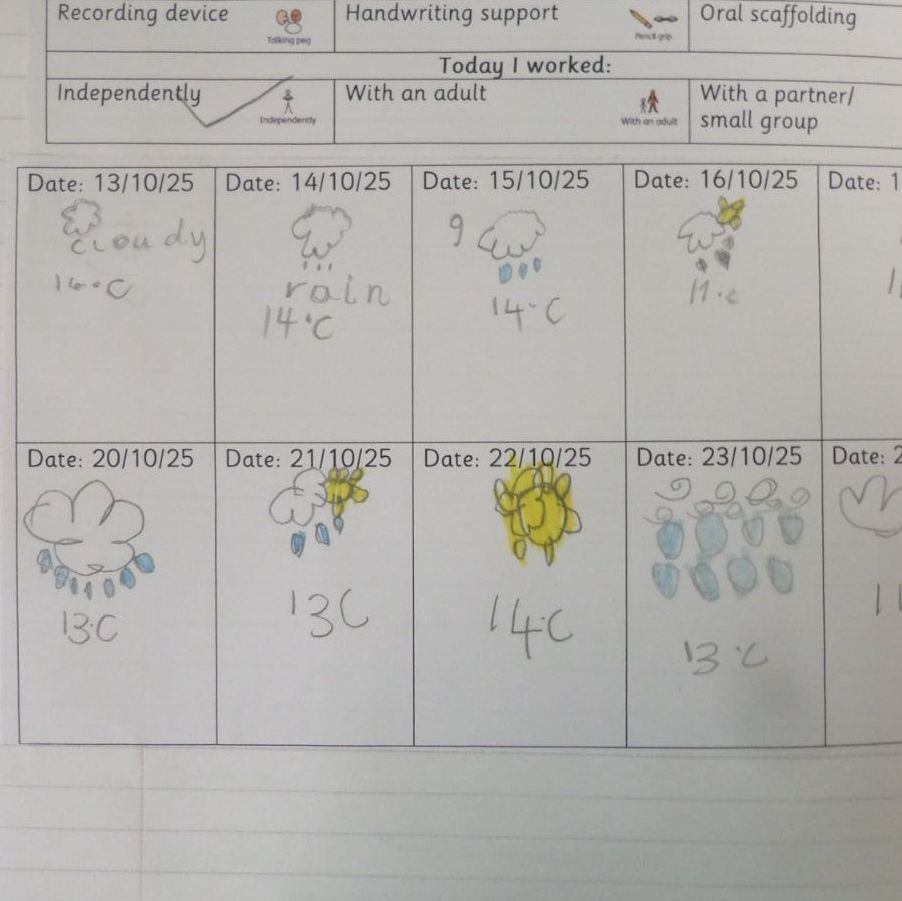 Recording device
Talking peg
Handwriting support
Pencil grip
Oral scaffolding
Today I worked:
Independently
Independently
With an adult
With an adult
With a partner/
small group
Date: 13/10/25
cloudy
14°C
Date: 14/10/25
rain
14°C
Date: 15/10/25
9
14°C
Date: 16/10/25
11°c
Date: 1
1
Date: 20/10/25
13°C
Date: 21/10/25
13C
Date: 22/10/25
14°C
Date: 23/10/25
13°C
Date: 2
11